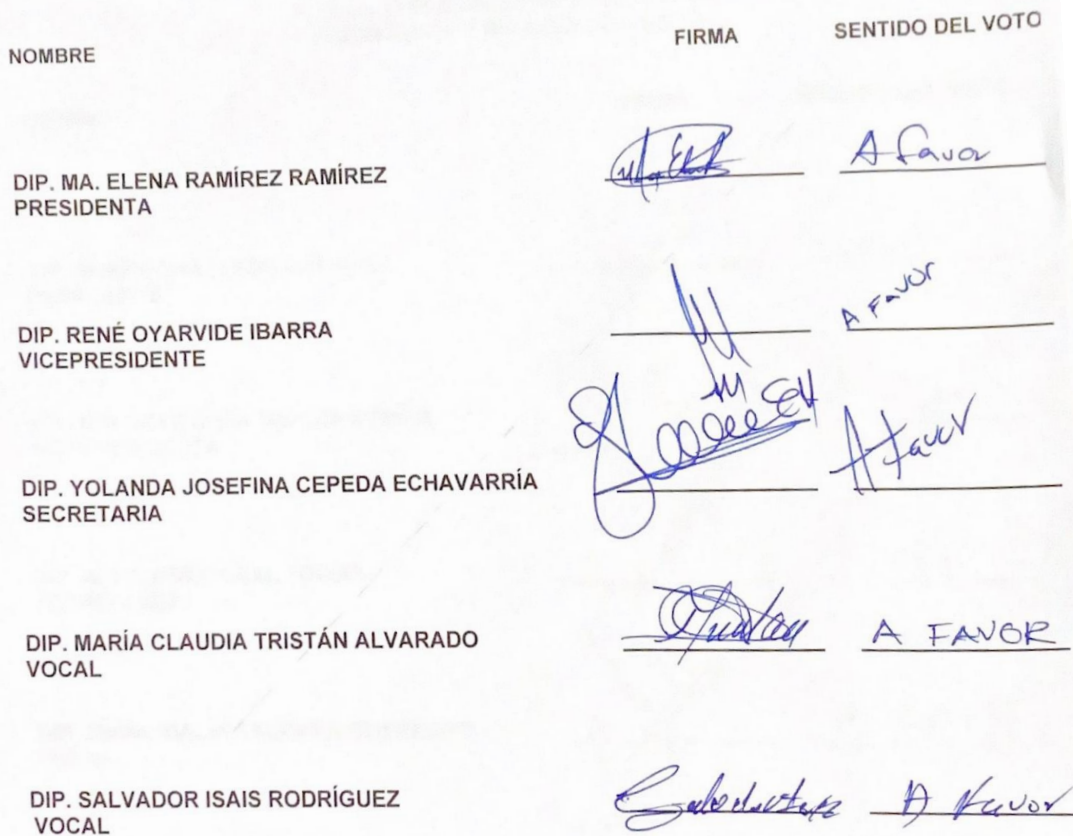 NOMBRE FIRMA SENTIDO DEL VOTO
DIP. MA. ELENA RAMÍREZ RAMÍREZ
PRESIDENTA
A favor
DIP. RENÉ OYARVIDE IBARRA
VICEPRESIDENTE
A FAVOR
DIP. YOLANDA JOSEFINA CEPEDA ECHAVARRÍA
SECRETARIA
A favor
DIP. MARÍA CLAUDIA TRISTÁN ALVARADO
VOCAL
A FAVOR
DIP. SALVADOR ISAIS RODRÍGUEZ
VOCAL
A favor